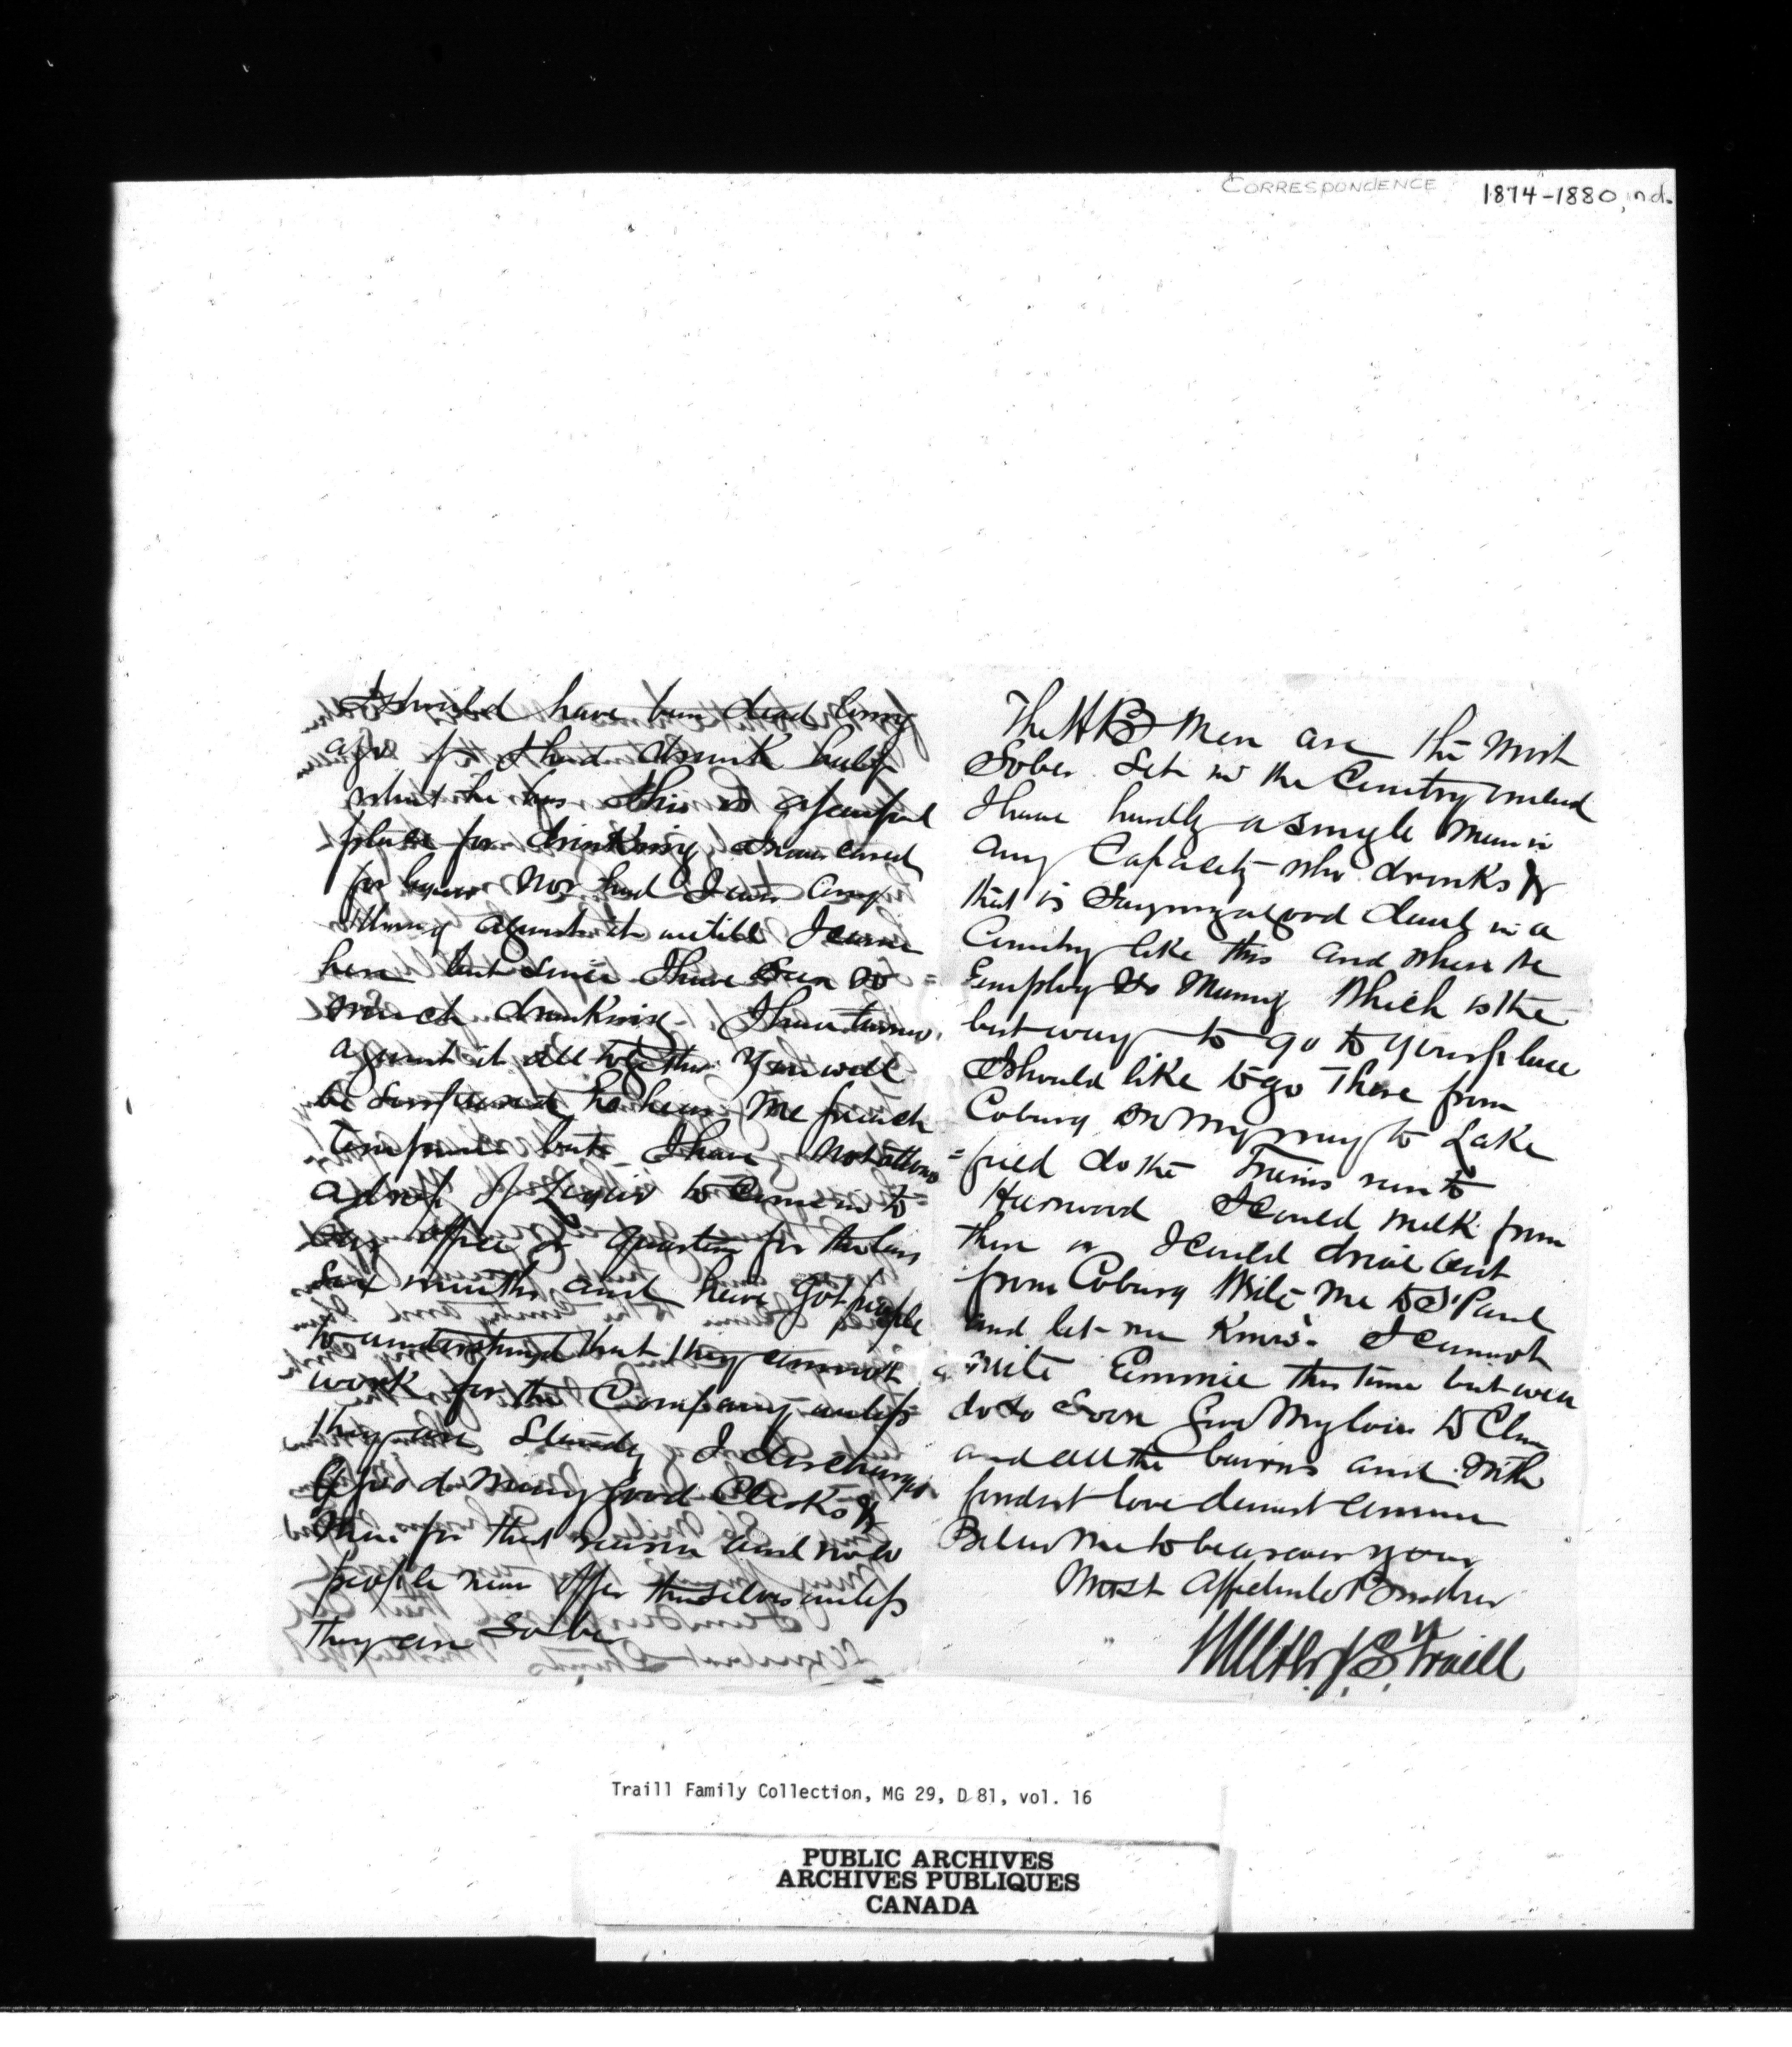 CORRESPONDENCE 1874-1880, n.d.
I should have been dead long
ago if I had drunk half
what he has this is a fearful
place for drinking I never cared
for liquor nor had I ever any
thing against it until I came
here but since I have seen so
much drinking I have turned
against it all together You will
be surprised to hear me preach
Temperance but I have not allowed
a drop of Liquor to come in to
my office or quarters for the last
six months and have got people
to understand that they cannot
work for the Company unless
they are Steady I discharged
a good many good Clerks &
men for that reason and now
people never offer themselves unless
they are Sober
The HB Men are the most
Sober Set in the Country indeed
I have hardly a single man in
any Capacity who drinks &
that is saying a good deal in a
Country like this and where we
Employ so many Which is the
best way to go to your place
I should like to go There from
Coburg on my way to Lake
=field do the Trains run to
Harwood I could walk from
there or I could drive out
from Coburg Write me to St Paul
and let me know. I cannot
write Emmie this time but will
do so soon Give My love to Clin
and all the bairns and with
fondest love dearest Annie
Believe me to be as ever your
Most Affectionate Brother
Walter J. S. Traill
Traill Family Collection, MG 29, D 81, vol. 16
PUBLIC ARCHIVES
ARCHIVES PUBLIQUES
CANADA